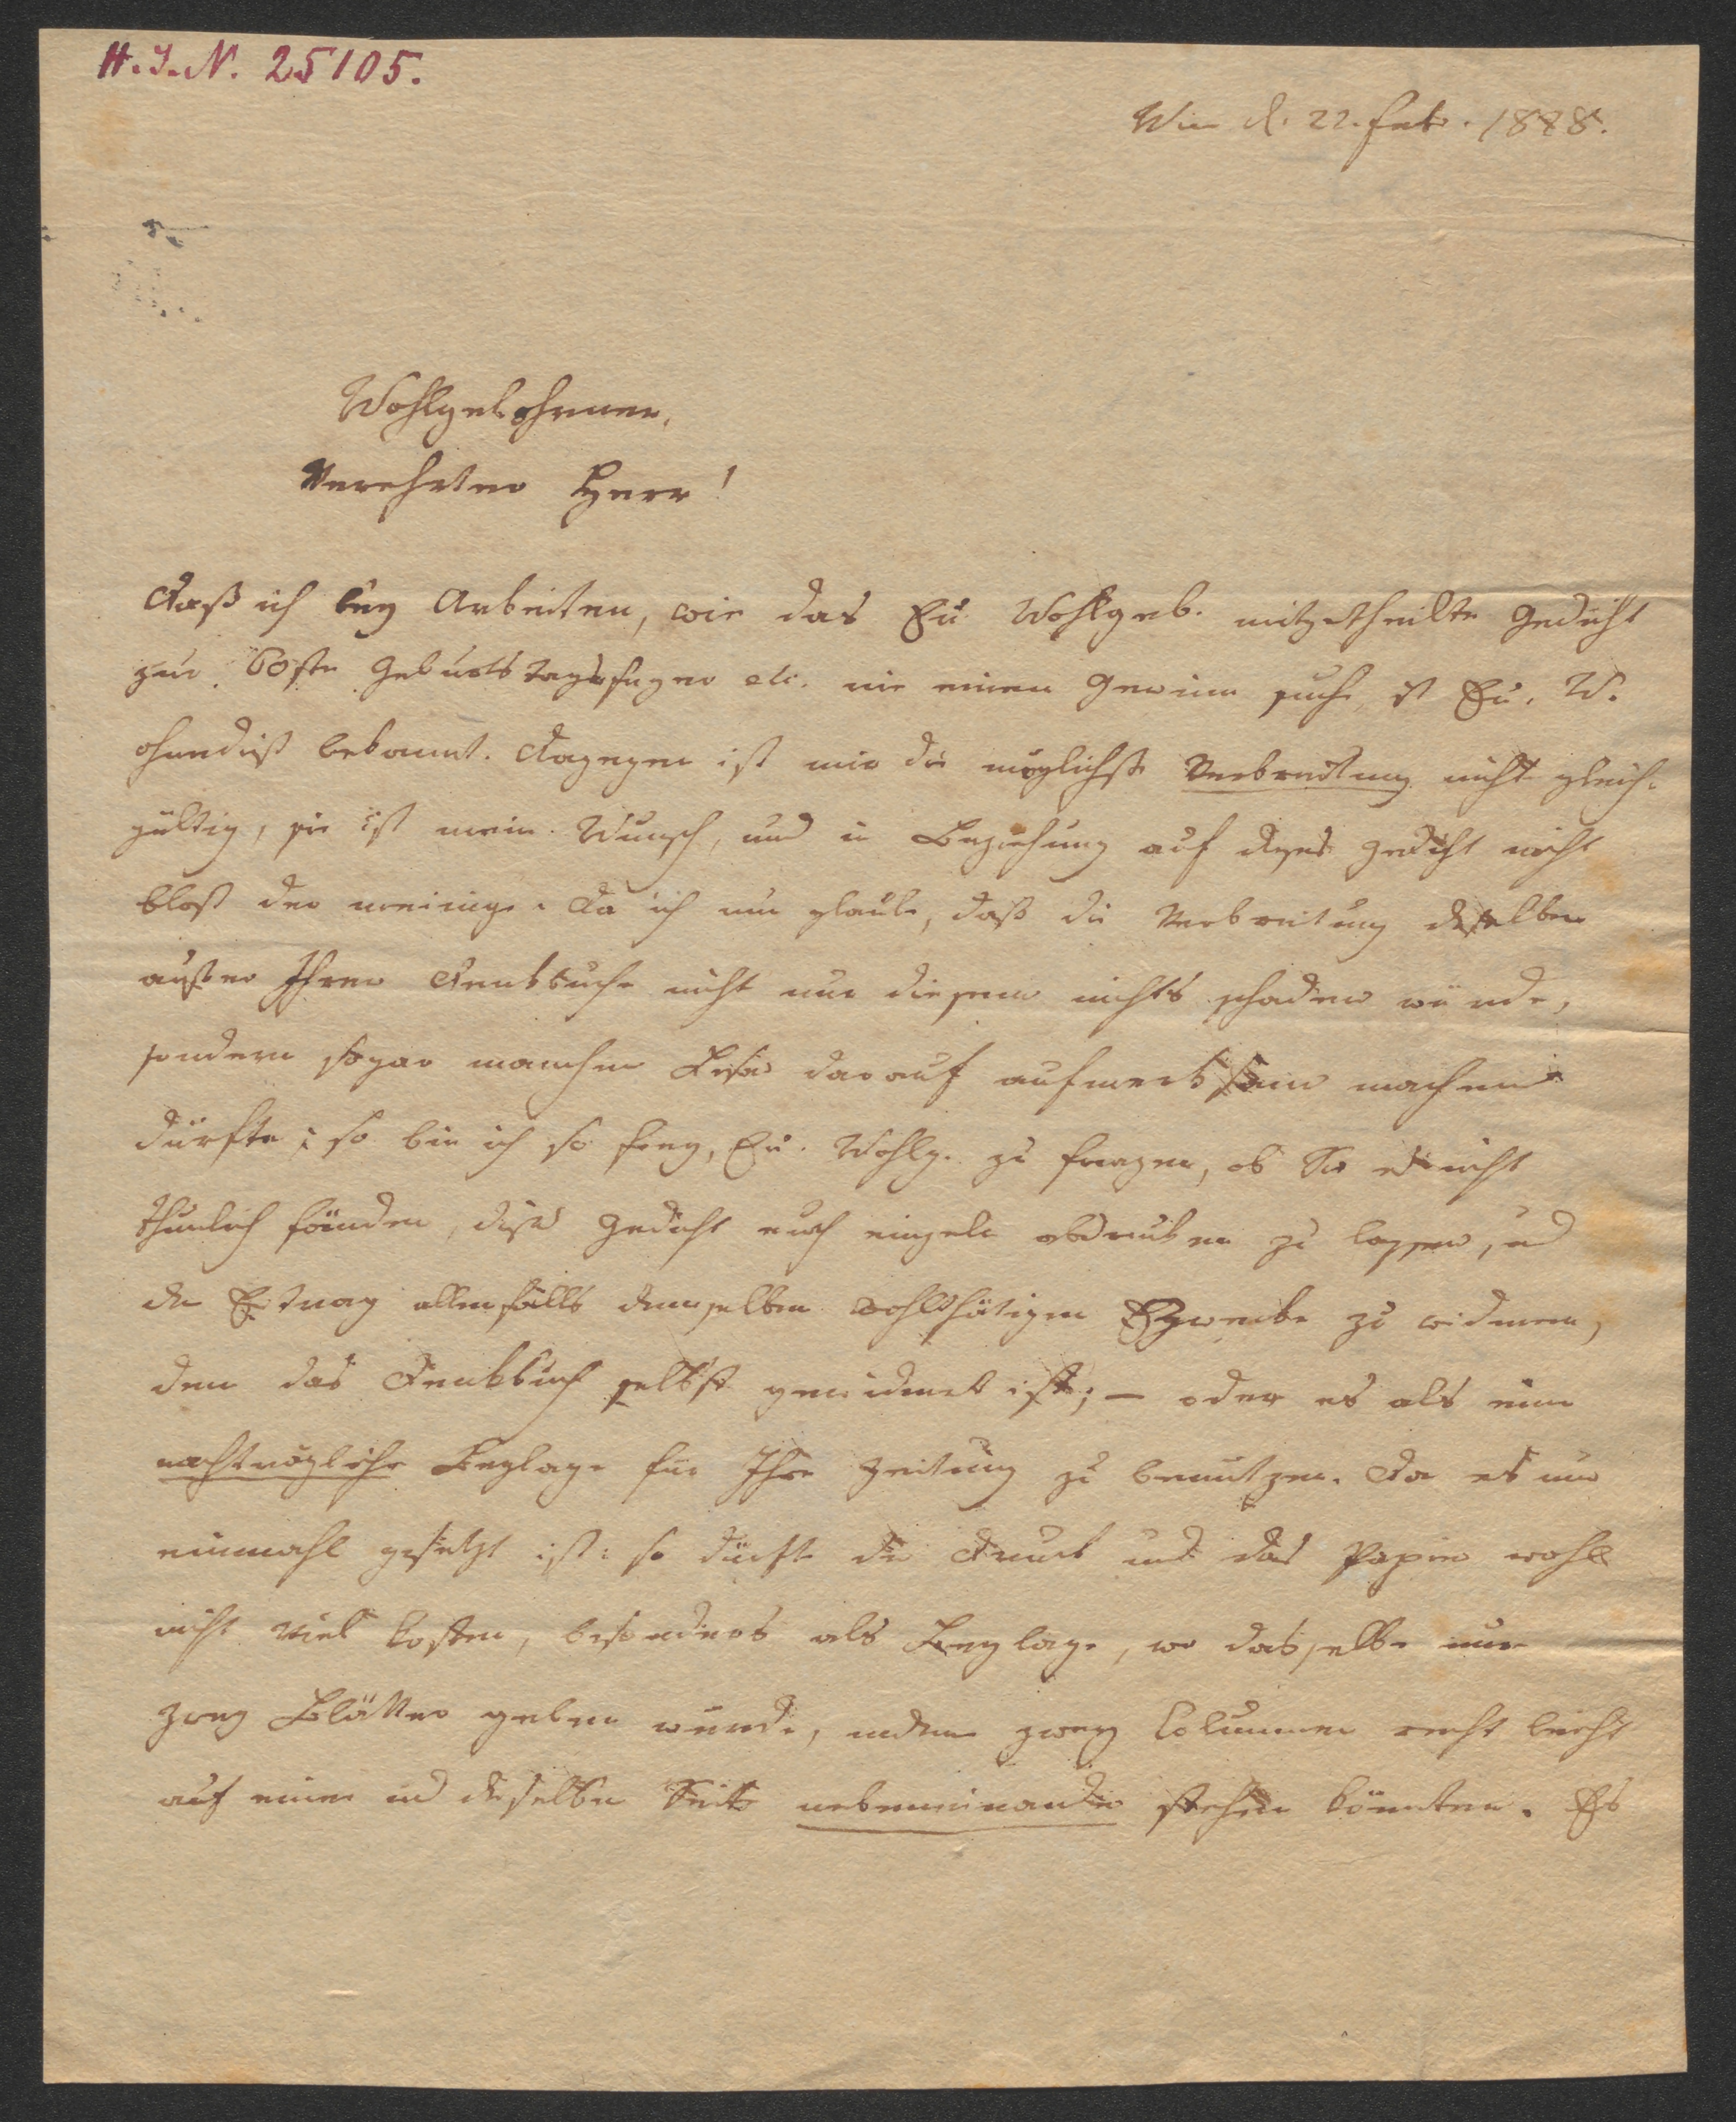 H.I.N. 25105.
Wien d. 22. Feb. 1828.
Wohlgebohrner,
Verehrter Herr!
Daß ich bey Arbeiten, wie das Eu Wohlgeb. mitgetheilte Gedicht
zur 60ste Geburtstagsfeyer etc. nie einen Gewinn suche, ist Eu. W.
ohnedieß bekannt. Dagegen ist mir die möglichste Verbreitung nicht gleich-
gültig, sie ist mein Wunsch, und in Beziehung auf dieses Gedicht nicht
bloß der meinige. Da ich nun glaube, daß die Verbreitung desselben
außer Ihrem Denkbuche nicht nur diesem nichts schaden würde,
sondern sogar manchen Leser darauf aufmerksam machen
dürfte; so bin ich so frey, Eu. Wohlg. zu fragen, ob Sie es nicht
thunlich fänden, dieses Gedicht auch einzeln abdrucken zu lassen, und
den Ertrag allenfalls demselben wohlthätigen Zwecke zu widmen,
dem das Denkbuch selbst gewidmet ist; – oder es als eine
nachträgliche Beylage für Ihre Zeitung zu benutzen. Da es nun
einmahl gesetzt ist: so dürfte der Druck und das Papier wohl
nicht viel kosten, besonders als Beylage, wo dasselbe nur
zwey Blätter geben würde, indem zwey Columnen recht leicht
auf einer und derselben Seite nebeneinander stehen könnten. Es